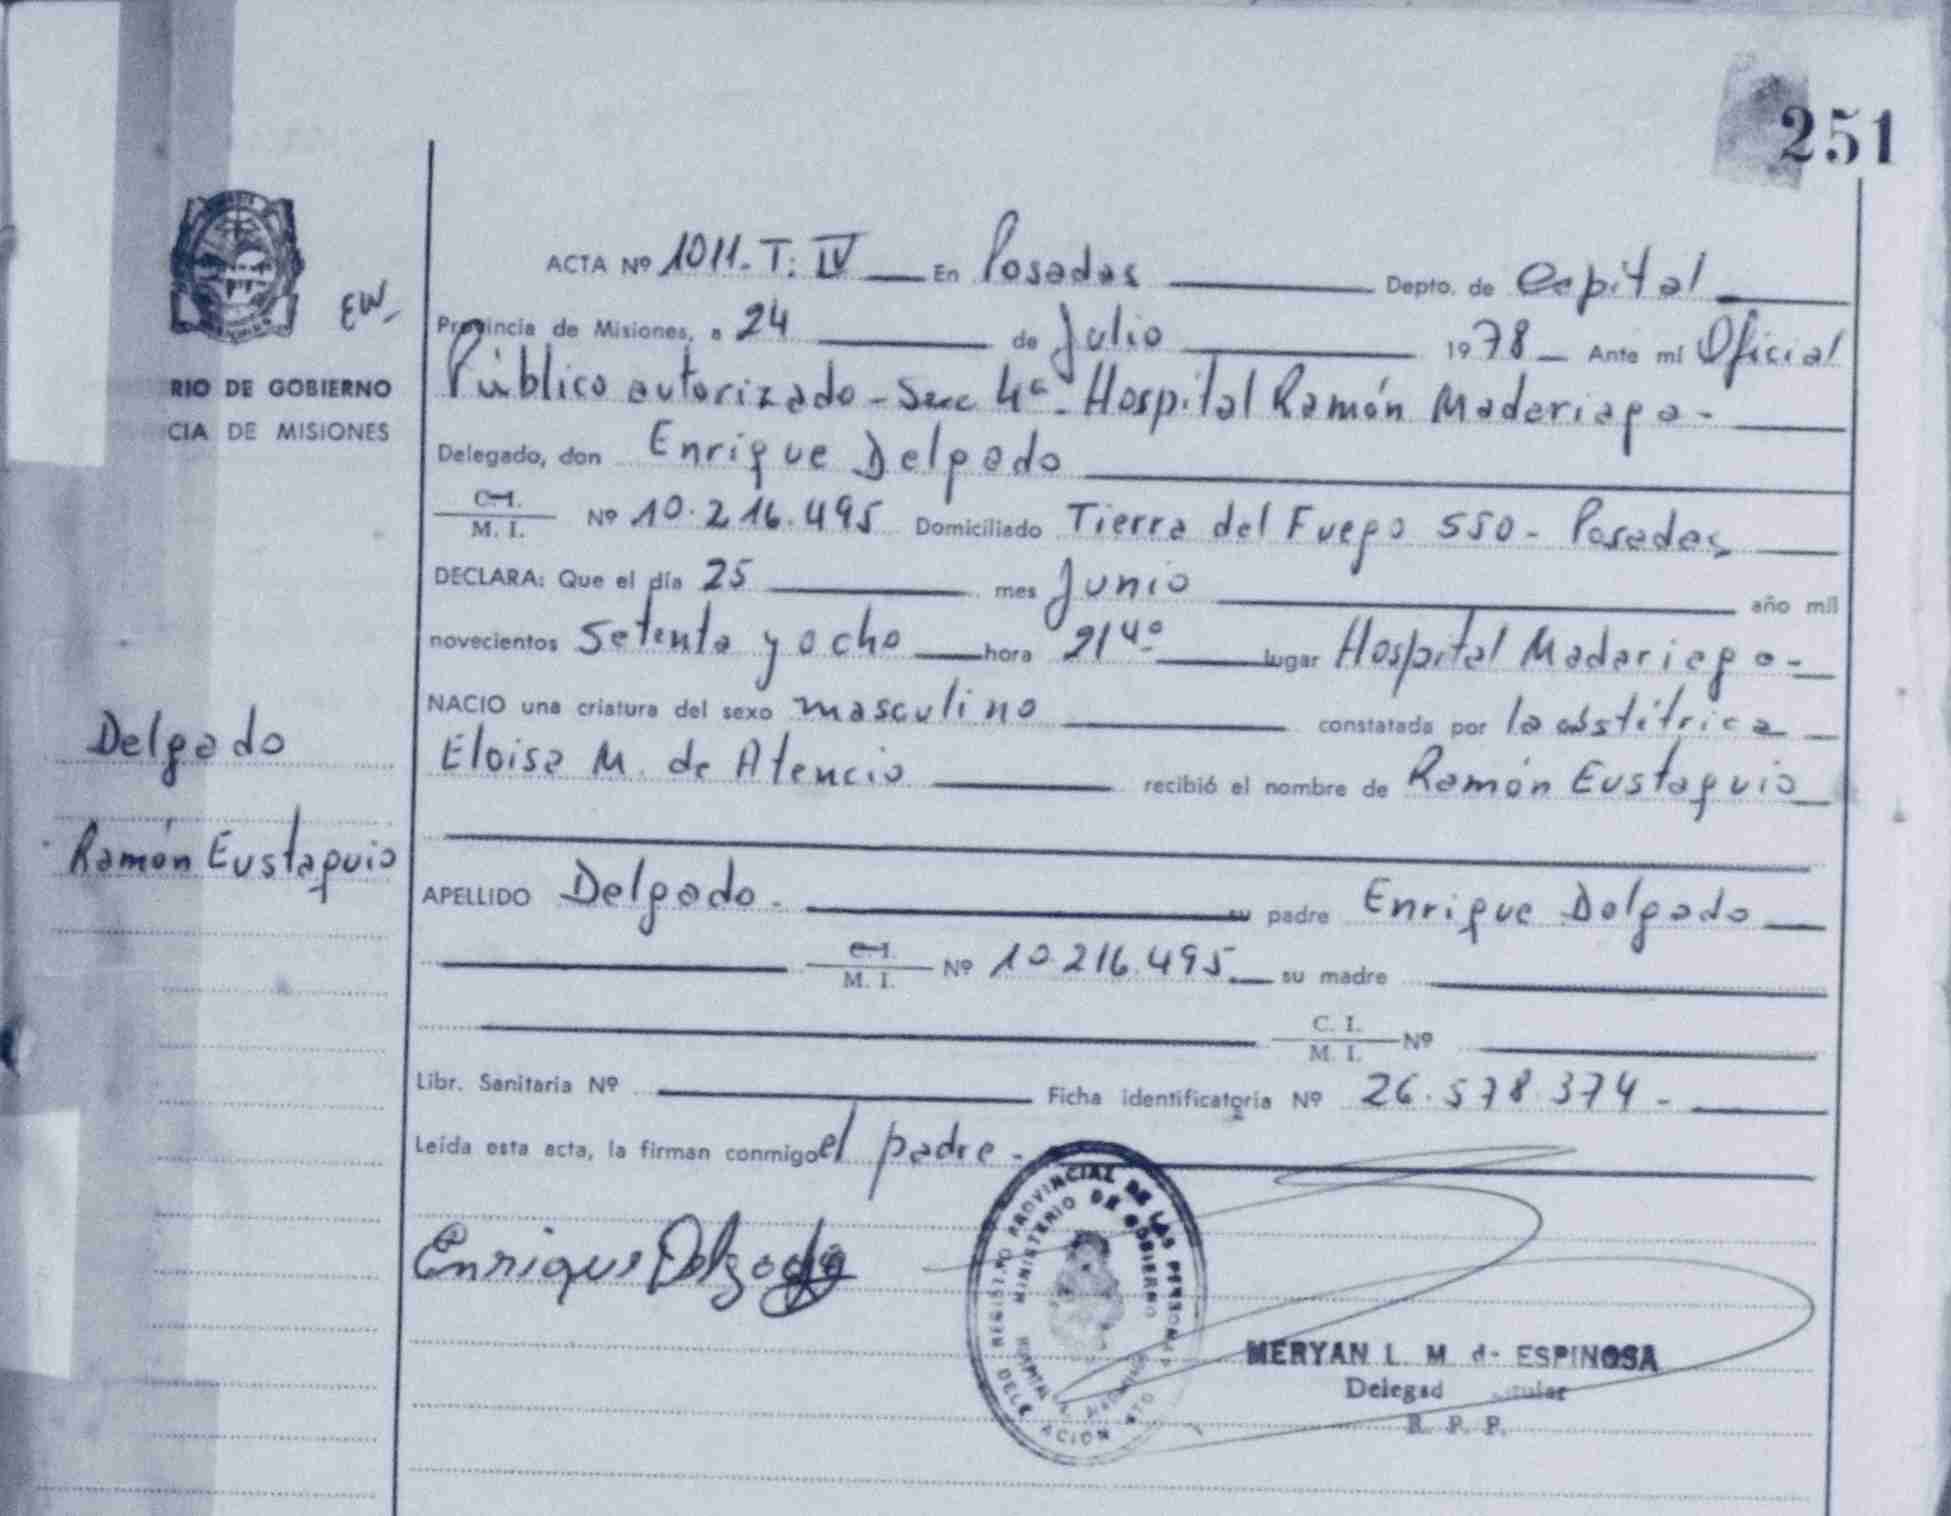 251
ACTA Nº 1011. T: IV En Posadas Depto. de Capital
EW-
Provincia de Misiones, a 24 de Julio 1978 Ante mí Oficial
RIO DE GOBIERNO
CIA DE MISIONES
Público autorizado - Secc 4ª - Hospital Ramón Madariaga -
Delegado, don Enrique Delgado
C.I.
M. I. Nº 10.216.495 Domiciliado Tierra del Fuego 550 - Posadas
DECLARA: Que el día 25 mes Junio año mil
novecientos Setenta y ocho hora 21 40 lugar Hospital Madariaga -
NACIO una criatura del sexo masculino constatada por la obstétrica
Eloisa M. de Atencio recibió el nombre de Ramón Eustaquio
Delgado
Ramón Eustaquio
APELLIDO Delgado. su padre Enrique Delgado
C.I.
M. I. Nº 10.216.495 su madre
C. I.
M. I. Nº
Libr. Sanitaria Nº Ficha identificatoria Nº 26.578.374 -
Leída esta acta, la firman conmigo el padre -
Enrique Delgado
REGISTRO PROVINCIAL DE LAS PERSONAS
MINISTERIO DE GOBIERNO
HOSPITAL
DELEGACION
MERYAN L. M. de ESPINOSA
Delegad
R. P. P.